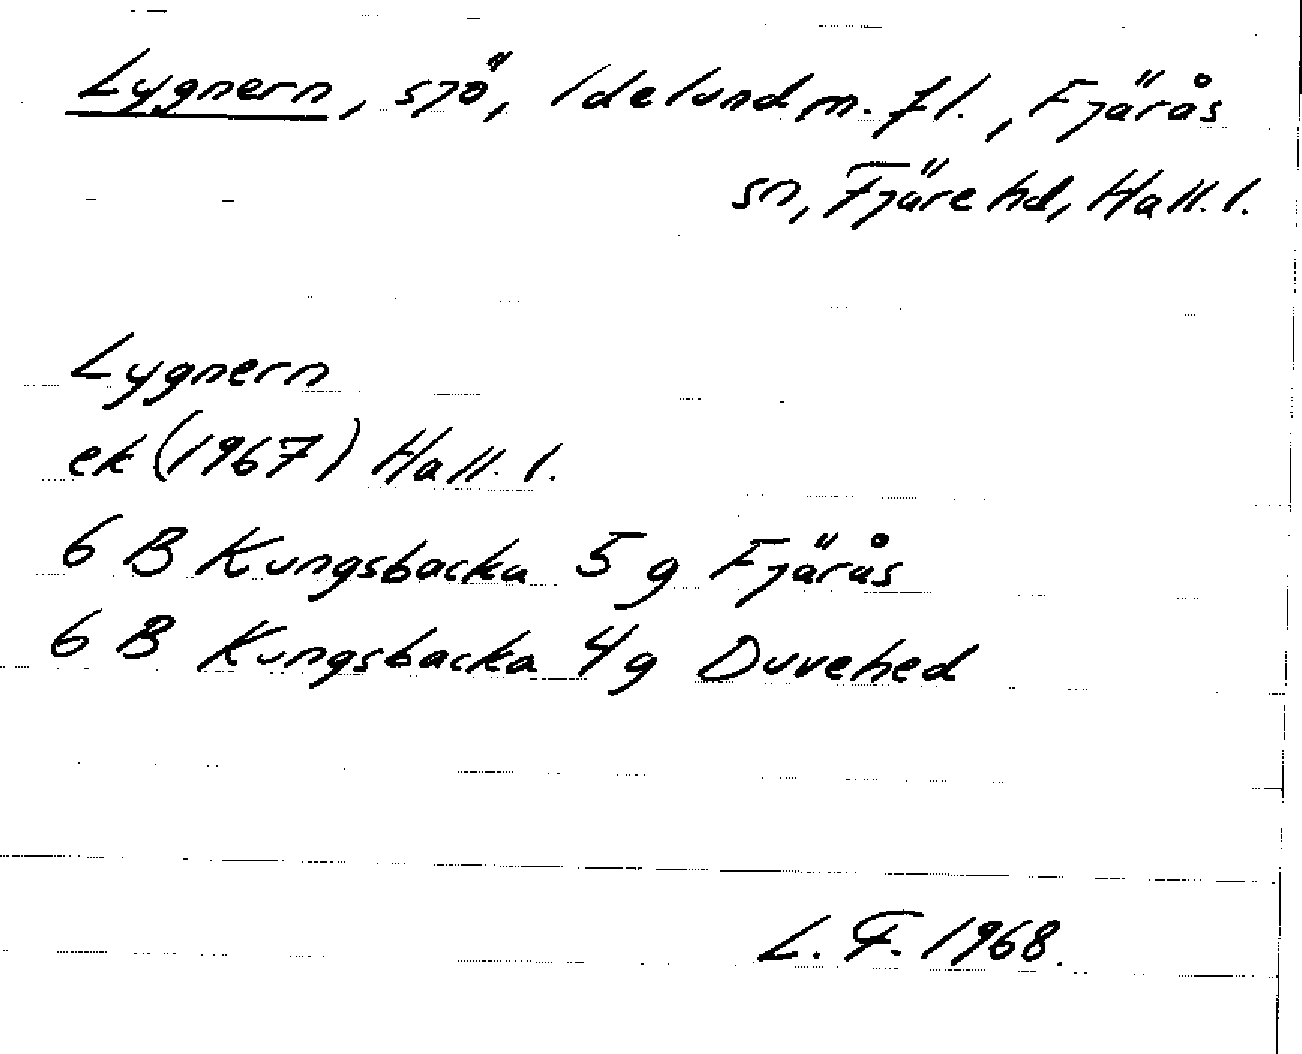 Lygnern, sjö, Idelund m. fl., Fjärås
sn, Fjäre hd, Hall. l.
Lygnern
ek (1967) Hall. l.
6 B Kungsbacka 5 g Fjärås
6 B Kungsbacka 4 g Duvehed
L. F. 1968.